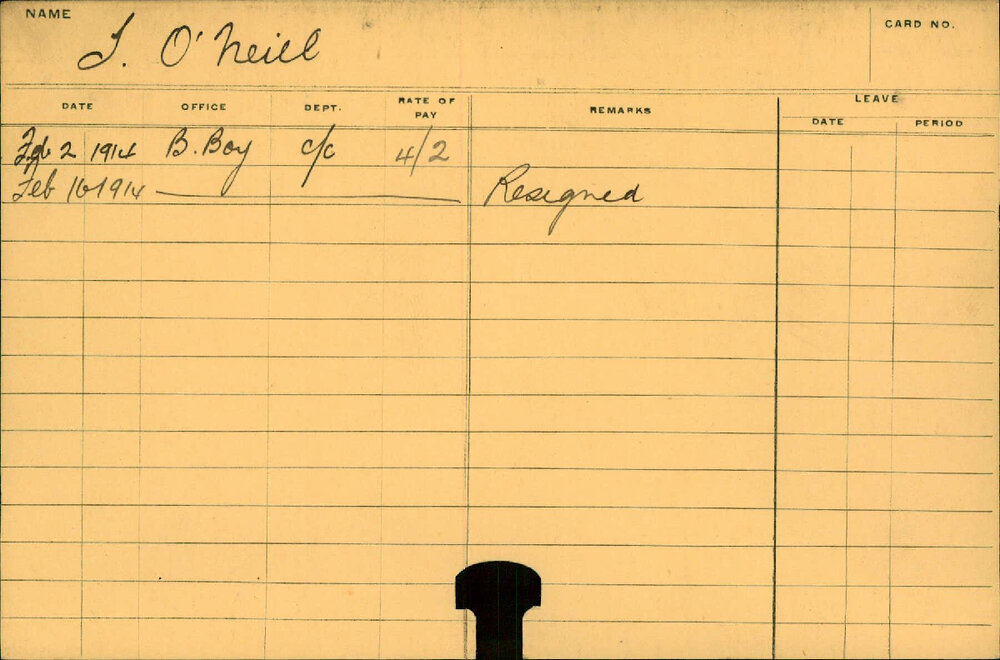 NAME
J. O'Neill
CARD NO.
DATE OFFICE DEPT. RATE OF PAY REMARKS LEAVE
DATE PERIOD
Feb 2 1914 B. Boy c/c 4/2
Feb 16 1914 Resigned